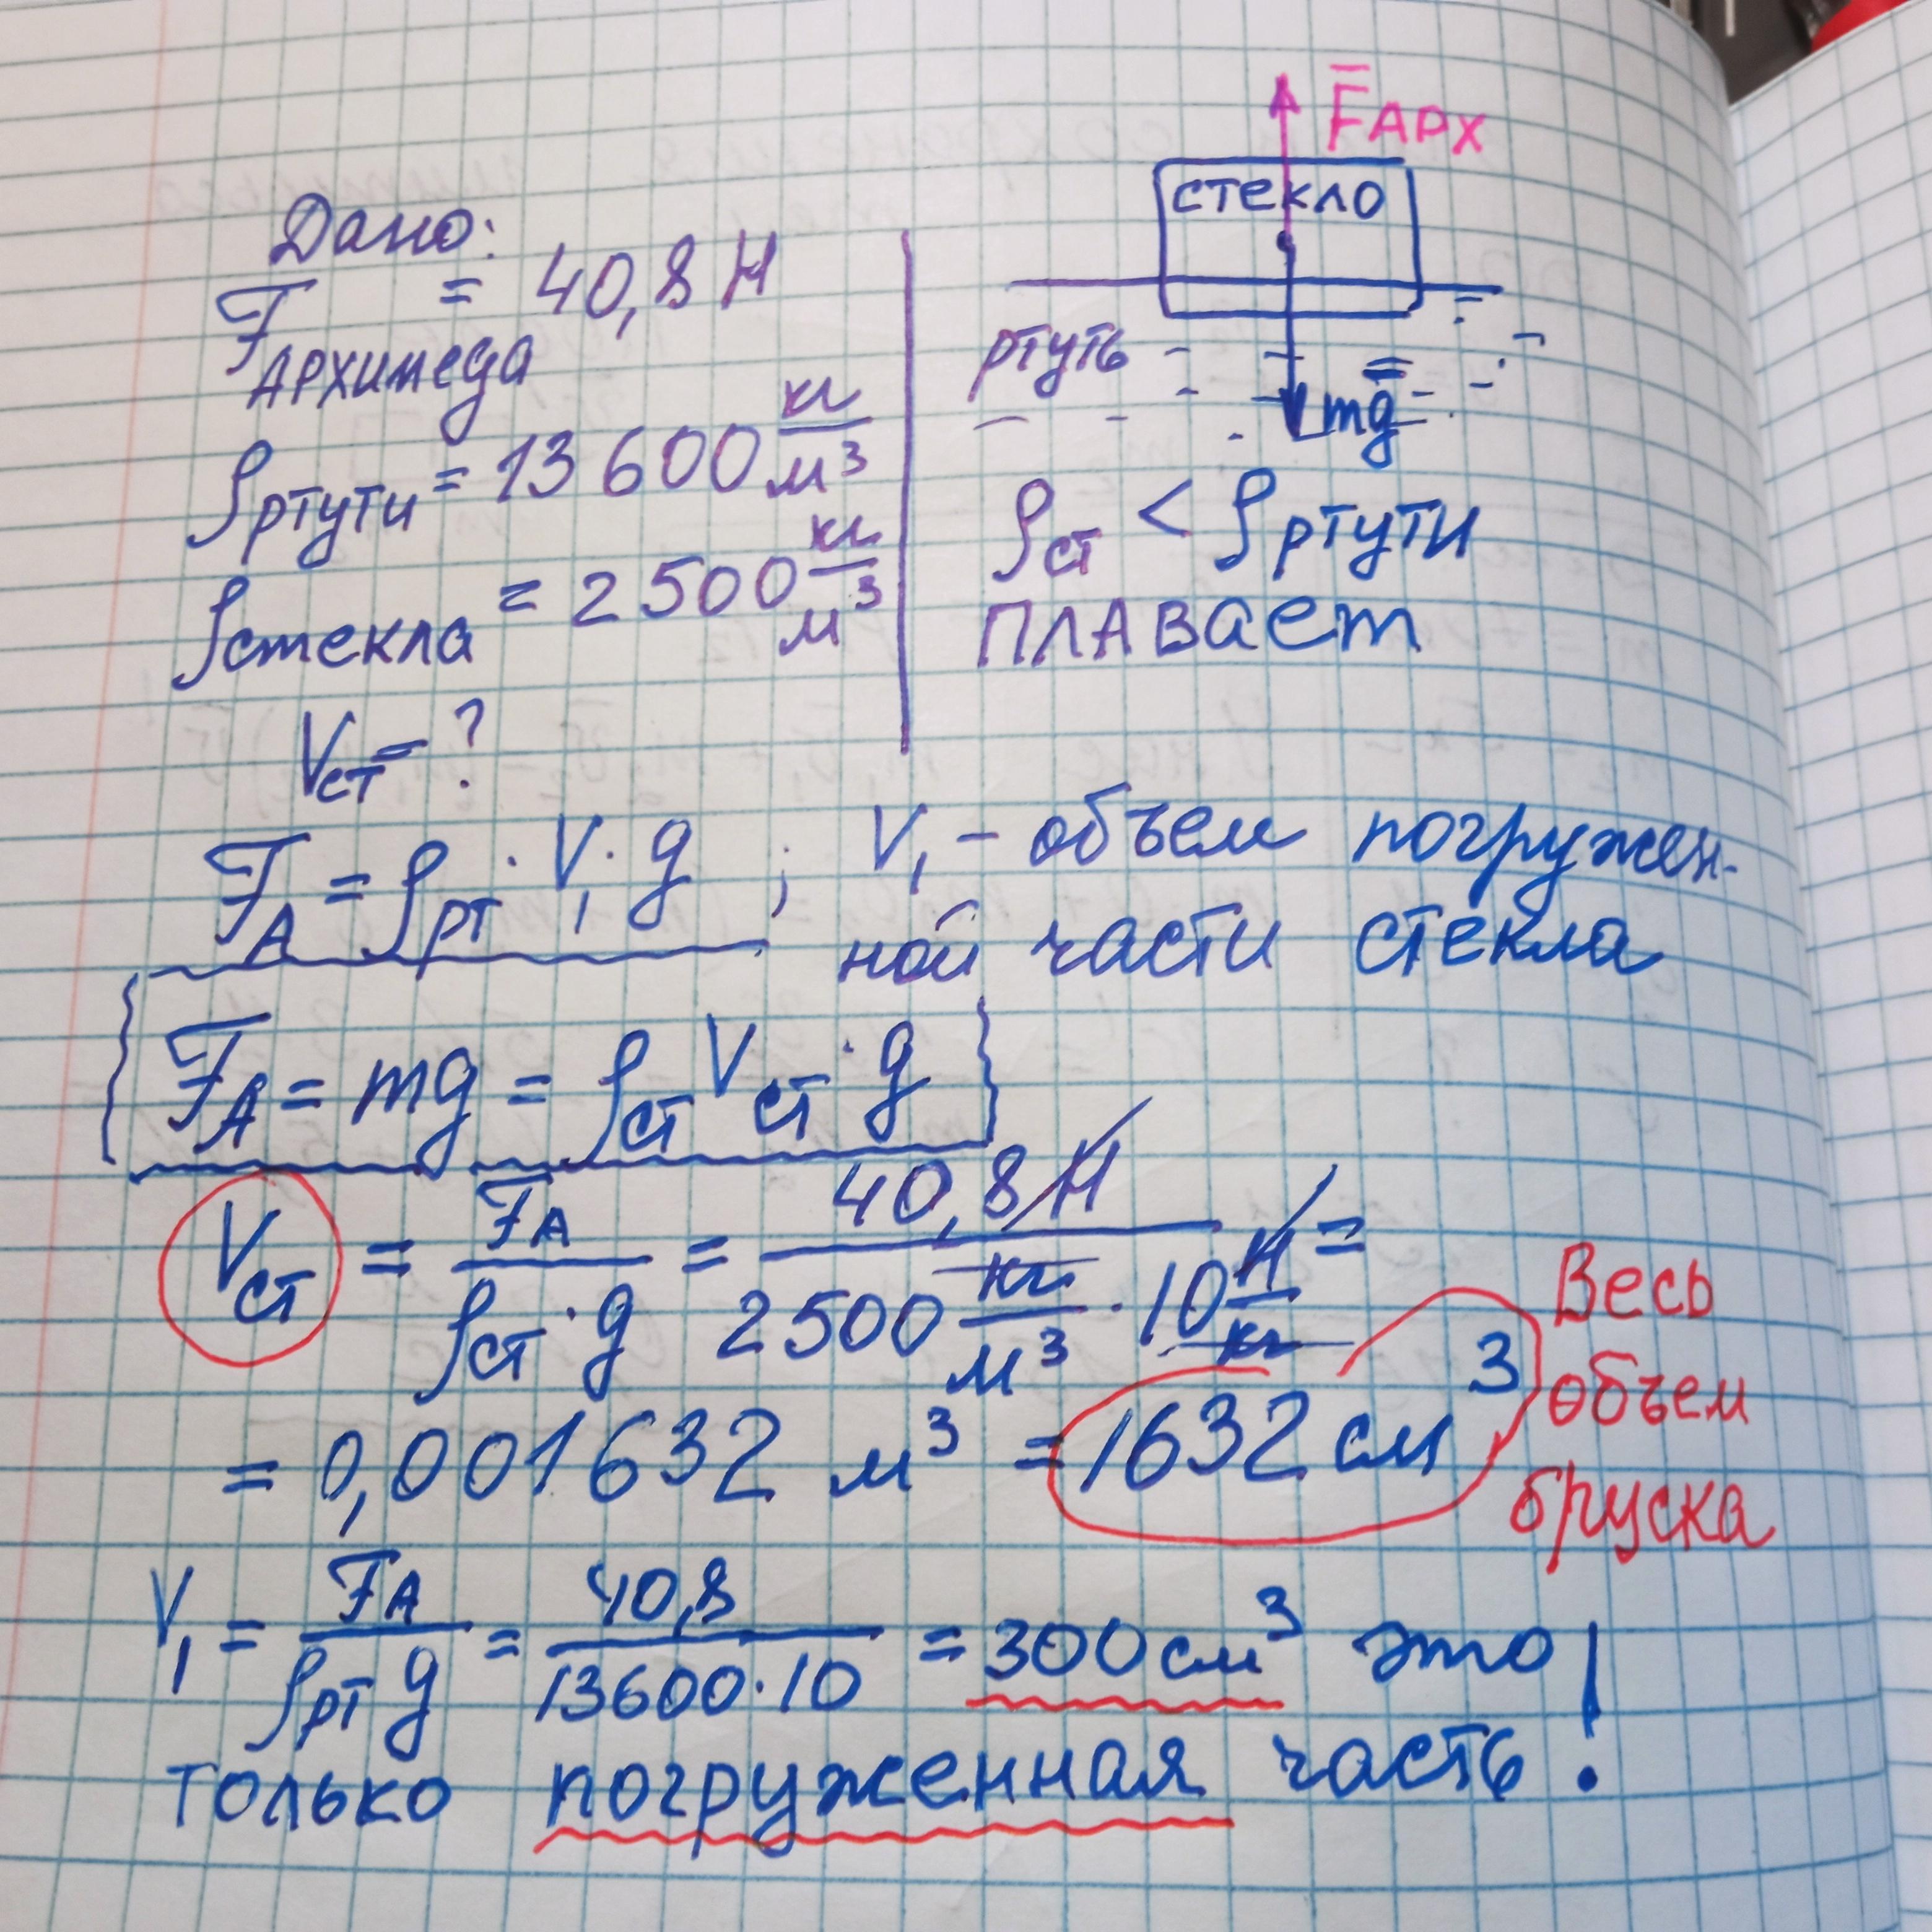 Дано:
F Архимеда = 40,8 Н
ρ ртути = 13 600 кг/м³
ρ стекла = 2 500 кг/м³
Vст = ?
F̅АРХ
стекло
ртуть
mg
ρст < ρртути
ПЛАВает
FА = ρрт · V₁ · g ; V₁ – объем погружен-
ной части стекла
FА = mg = ρст Vст · g
Vст = FА / ρст · g = 40,8 Н / 2500 кг/м³ · 10 Н/кг =
= 0,001632 м³ = 1632 см³
Весь
объем
бруска
V₁ = FА / ρрт g = 40,8 / 13600 · 10 = 300 см³ это
только погруженная часть !